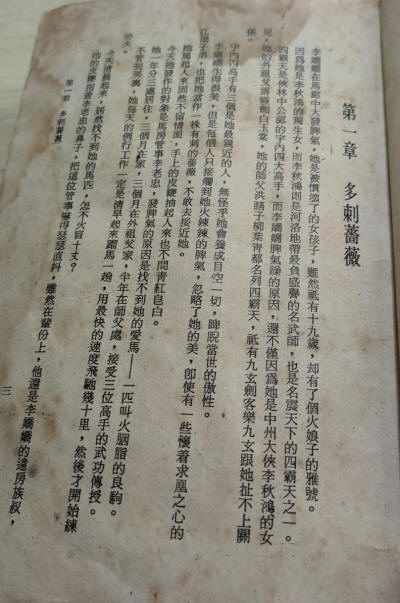 第一章　多刺薔薇
李嬌嬌在馬廄中大發脾氣，她是被慣壞了的女孩子，雖然祇有十九歲，却有了個火娘子的雅號。
因為她是李秋鴻的獨生女，而李秋鴻則是河洛地帶最負盛譽的名武師，也是名震天下的四霸天之一。
四霸天是俠林中公認的宇內四大高手，而李嬌嬌脾氣躁的原因，還不僅因為她是中州大俠李秋鴻的女
兒，她的外祖父霹靂劍白玉棠，她的師父洪瞎子柳葉青都名列四霸天，祇有九玄劍客樂九玄跟她扯不上關
係。
宇內四高手有三個是她最親近的人，無怪乎她會養成目空一切，睥睨當世的傲性。
李嬌嬌生得很美，但是每個人只接觸到她火辣辣的脾氣，忽略了她的美，即使有一些懷着求凰之心的
江湖子弟，也把她當作一株有刺的薔薇，不敢去接近她。
她罵起人來固然不留情面，手上的皮鞭抽起人來也不問青紅皂白。
今天她發作的對象是馬房管事李老忠，發脾氣的原因是找不到她的愛馬——一匹叫火胭脂的良駒。
她一年分三處居住，三個月在家，三個月在外祖父家，半年在師父處，接受三位高手的武功傳授。
不管到那裏，她每天的例行工作一定是清早起來蹓馬一趟，用最快的速度飛馳幾十里，然後才開始練
功夫。
今天清晨起來，居然找不到她的馬匹，怎不火冒十丈？
她的皮鞭指着李老忠的鼻子，把這位管事嚇得瑟瑟直抖，雖然在輩份上，他還是李嬌嬌的遠房族叔，
第一章　多刺薔薇
三